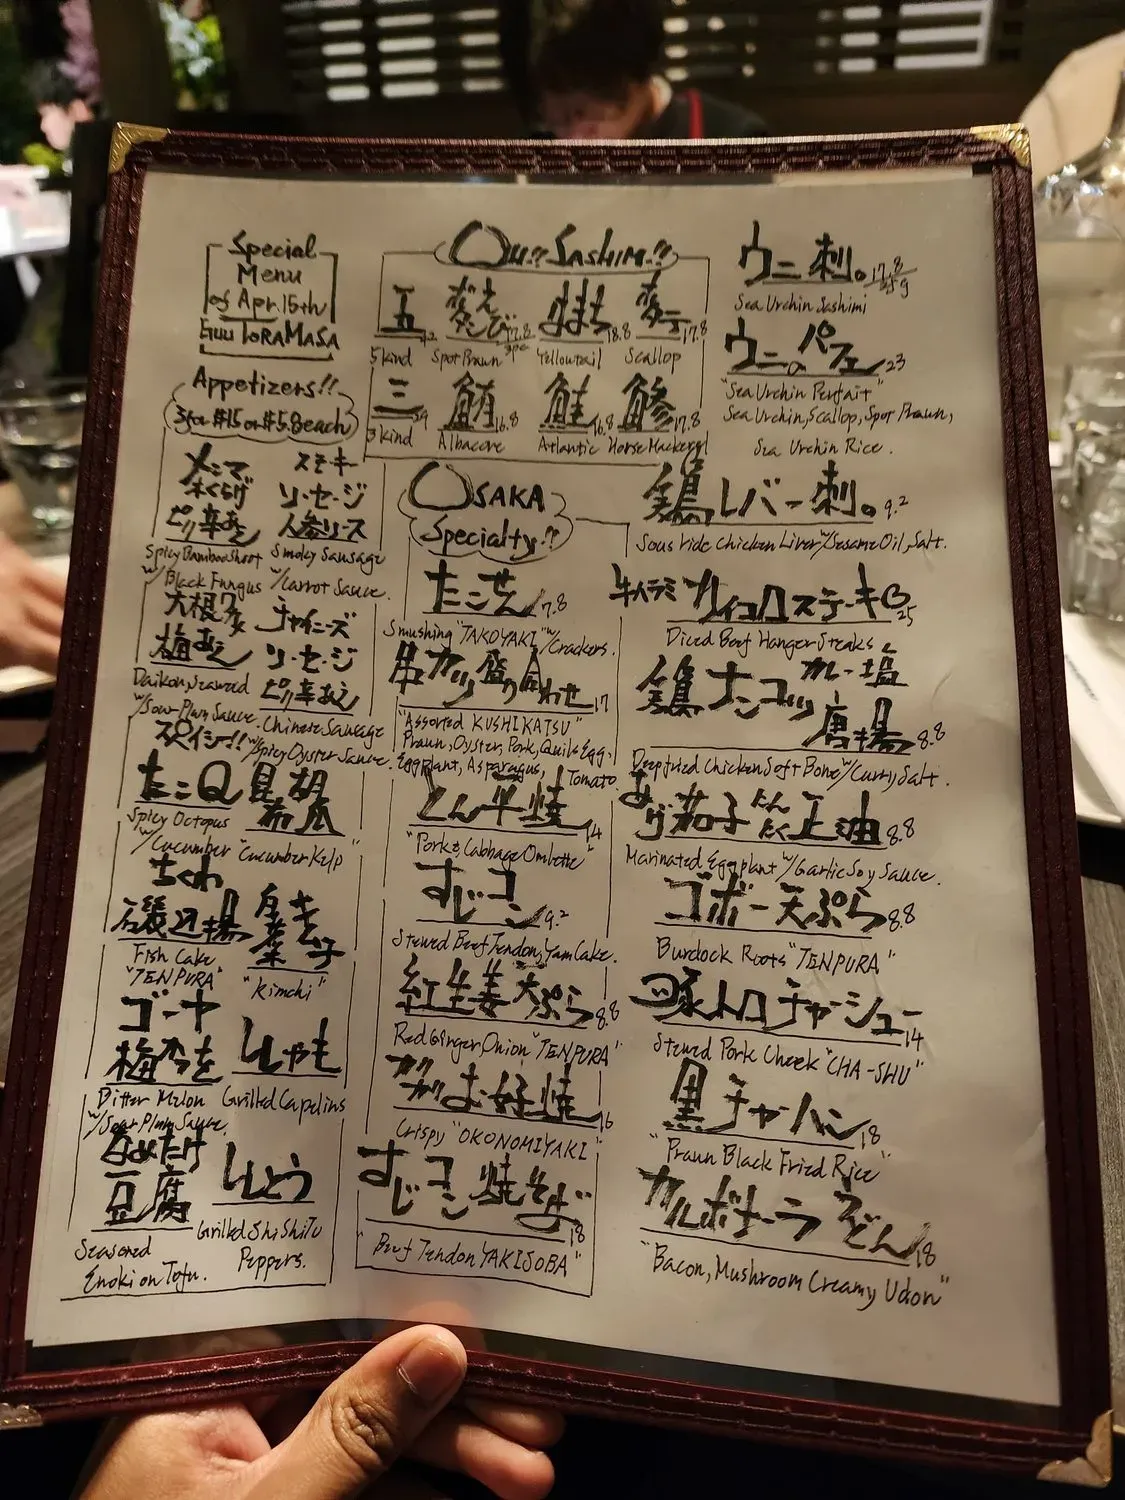 Special
Menu
of Apr. 15th
Guu ToRAMASA
Appetizers!!
3 for $15 or $5.8 each
メンマ
木くらげ
ピリ辛あえ
Spicy Bamboo Shoot
w/Black Fungus
スモーキー
ソーセージ
人参ソース
Smoky Sausage
w/Carrot Sauce.
大根
梅あえ
Daikon, Seaweed
w/Sour Plum Sauce.
チャイニーズ
ソーセージ
ピリ辛あえ
Chinese Sausage
w/Spicy Oyster Sauce.
スパイシー!!
たこQ
Spicy Octopus
w/Cucumber
昆布
胡瓜
"Cucumber Kelp"
ちくわ
磯辺揚
Fish Cake
"TENPURA"
"Kimchi"
ゴーヤ
梅
Bitter Melon
w/Sour Plum Sauce.
ししゃも
Grilled Capelins
なめたけ
豆腐
Seasoned
Enoki on Tofu.
ししとう
Grilled ShiShiTo
Peppers.
SASHIMI!!
五 42
5 kind
17.8
Spot Prawn 3pc
はまち 18.8
Yellowtail
17.8
Scallop
三 29
3 kind
鮪 16.8
Albacore
鮭 16.8
Atlantic
鯵 17.8
Horse Mackerel
OSAKA
Specialty!!
たこせん 7.8
Smushing "TAKOYAKI" w/Crackers.
串カツ盛り合わせ 17
"Assorted KUSHIKATSU"
Prawn, Oyster, Pork, Quile Egg,
Eggplant, Asparagus, Tomato.
とん平焼 14
"Pork & Cabbage Omlette"
すじコン 9.2
Stewed Beef Tendon, Yam Cake.
紅生姜天ぷら 8.8
Red Ginger, Onion "TENPURA"
ガリガリお好焼 16
Crispy "OKONOMIYAKI"
すじコン焼そば 18
"Beef Tendon YAKISOBA"
ウニ刺。 17.8
Sea Urchin Sashimi
ウニのパフェ 23
"Sea Urchin Perfait"
Sea Urchin, Scallop, Spot Prawn,
Sea Urchin Rice.
鶏レバー刺。 9.2
Sous Vide Chicken Liver w/Sesame Oil, Salt.
牛ハラミサイコロステーキ 25
Diced Beef Hanger Steaks
鶏ナンコツカレー塩
唐揚 8.8
Deep fried Chicken Soft Bone w/Curry Salt.
あげ茄子にんにく正油 8.8
Marinated Eggplant w/Garlic Soy Sauce.
ゴボー天ぷら 8.8
Burdock Roots "TENPURA"
豚トロチャーシュー 14
Stewed Pork Cheek "CHA-SHU"
黒チャーハン 18
"Prawn Black Fried Rice"
カルボナーラうどん 18
"Bacon, Mushroom Creamy Udon"